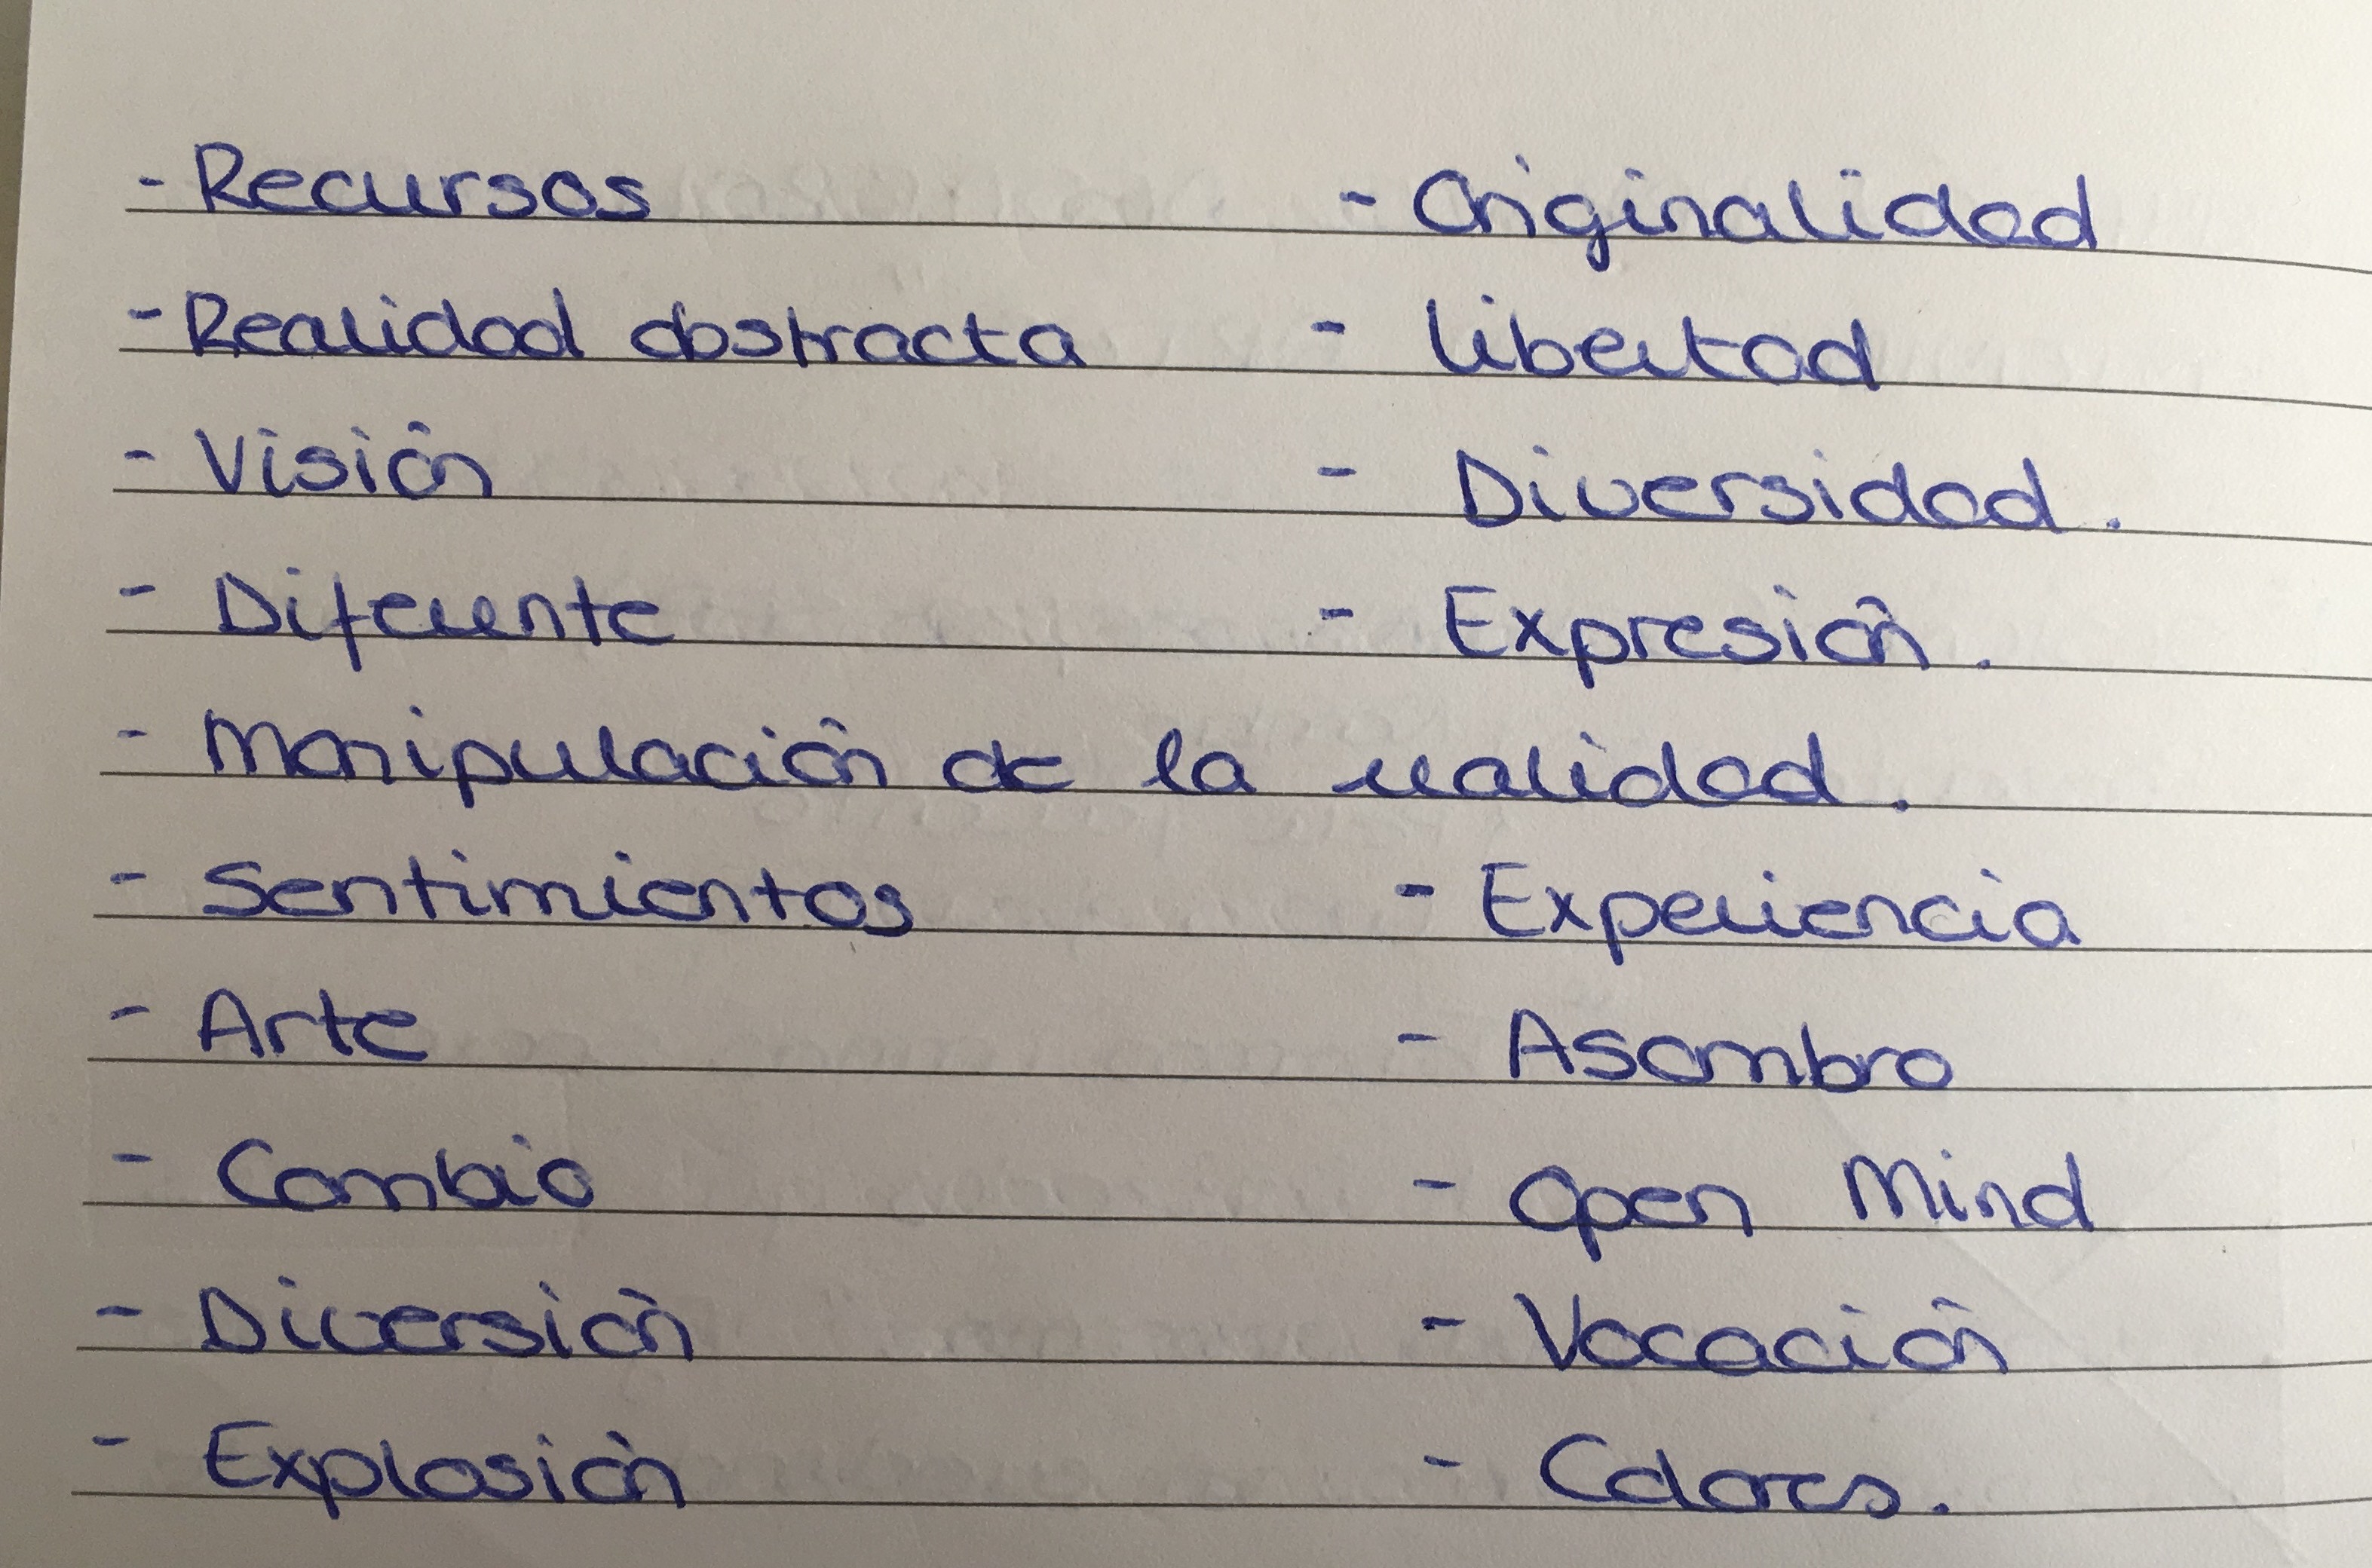 - Recursos - Originalidad
- Realidad abstracta - libertad
- Visión - Diversidad.
- Diferente - Expresión.
- Manipulación de la realidad.
- Sentimientos - Experiencia
- Arte - Asombro
- Cambio - Open Mind
- Diversión - Vocación
- Explosión - Colores.